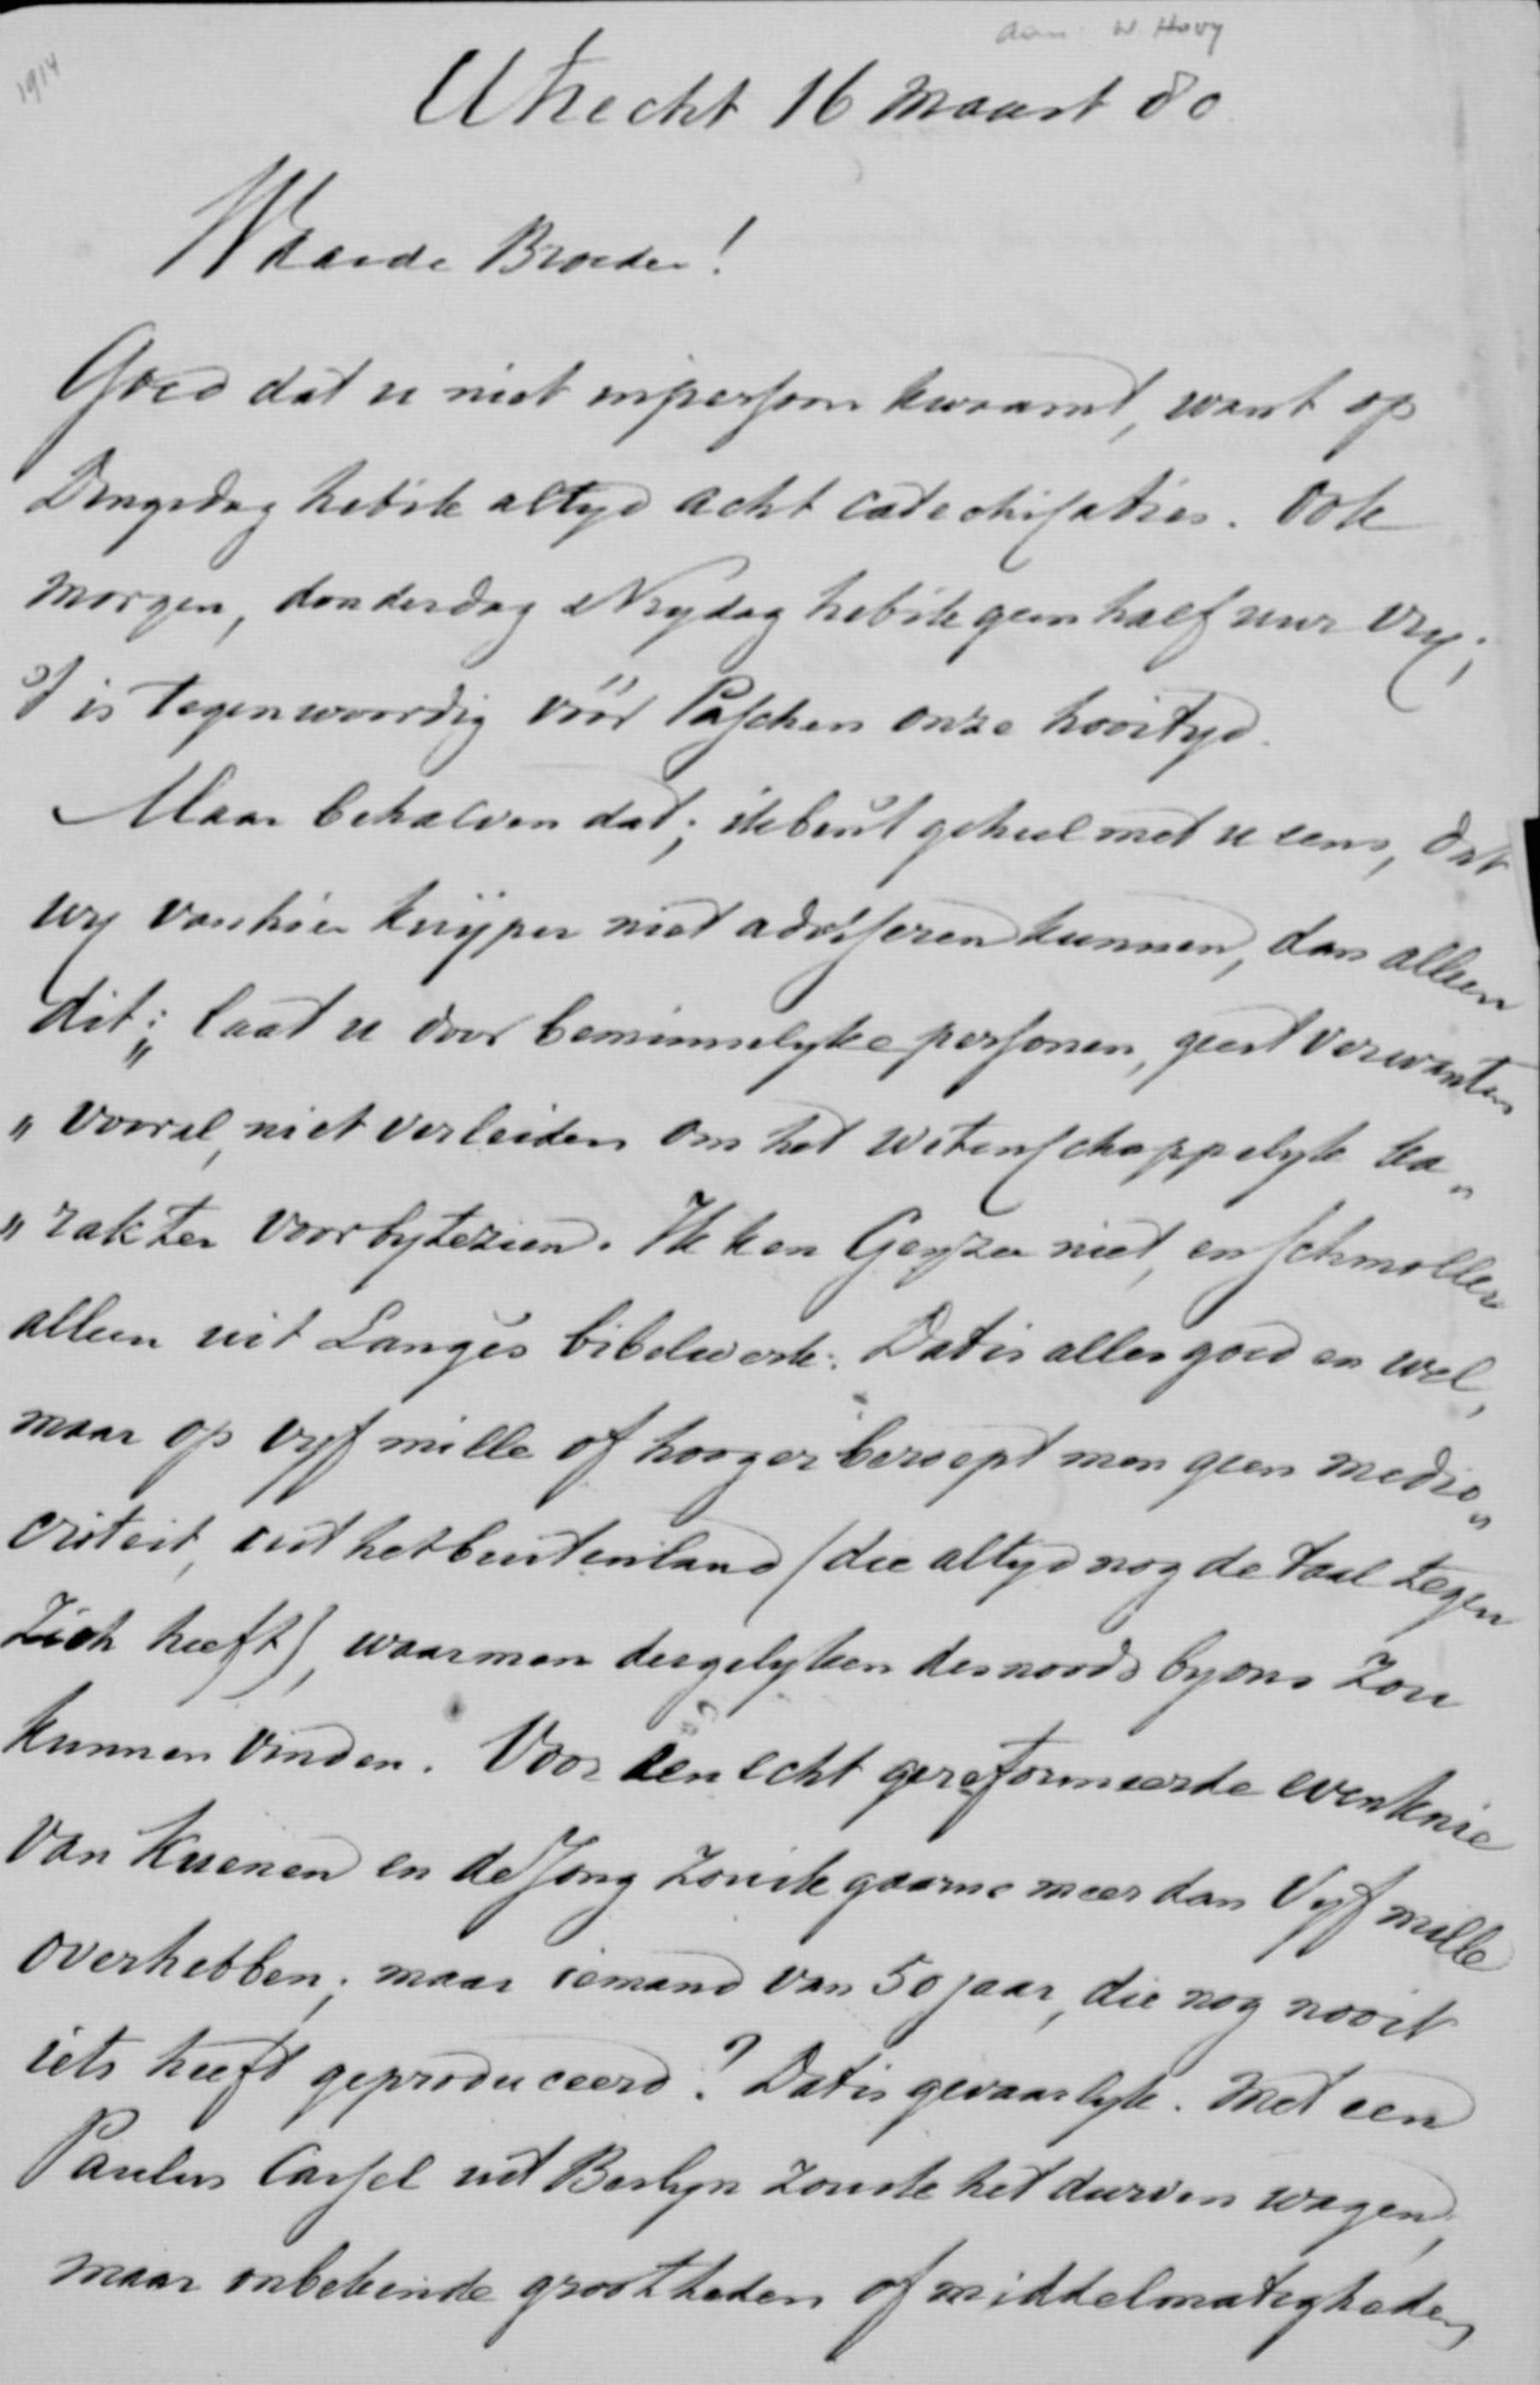 aan W. Hovy
1914
Utrecht 16 Maart 80
Waarde Broeder!
Goed dat u niet inpersoon kwaamt, want op
Dingsdag heb ik altyd acht catechisaties. Ook
morgen, donderdag & Vrydag heb ik geen half uur vry;
't is tegenwoordig vóór Paschen onze hooityd.
Maar behalven dat; ik ben 't geheel met u eens, dat
wy van hier Kuijper niet adviseren kunnen, dan alleen
dit: „laat u door beminnelyke personen, geestverwanten
„vooral, niet verleiden om het wetenschappelyk ka„
„rakter voorbytezien. Ik ken Geyzer niet, en Schmoller
alleen uit Lange's bibelwerk. Dat is alles goed en wel,
maar op vyf mille of hooger beroept men geen medio„
criteit, uit het buitenland (die altyd nog de taal tegen
zich heeft), waarmen dergelyken desnoods by ons zou
kunnen vinden. Voor een echt gereformeerde evenknie
van Kuenen en de Jong zou ik gaarne meer dan vyf mille
overhebben; maar iemand van 50 jaar, die nog nooit
iets heeft geproduceerd? Dat is gevaarlyk. Met een
Paulus Cassel uit Berlyn zou ik het durven wagen,
maar onbekende grootheden of middelmatigheden